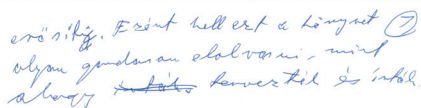 erősítik. Ezért kell ezt a könyvet 7
olyan gondosan elolvasni, mint
ahogy tervezték és írták.